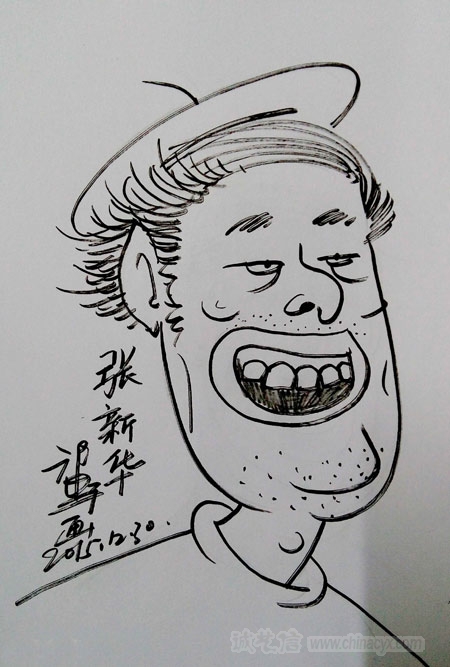 张新华
画
2015.12.30.
诚艺信 www.chinacyx.com